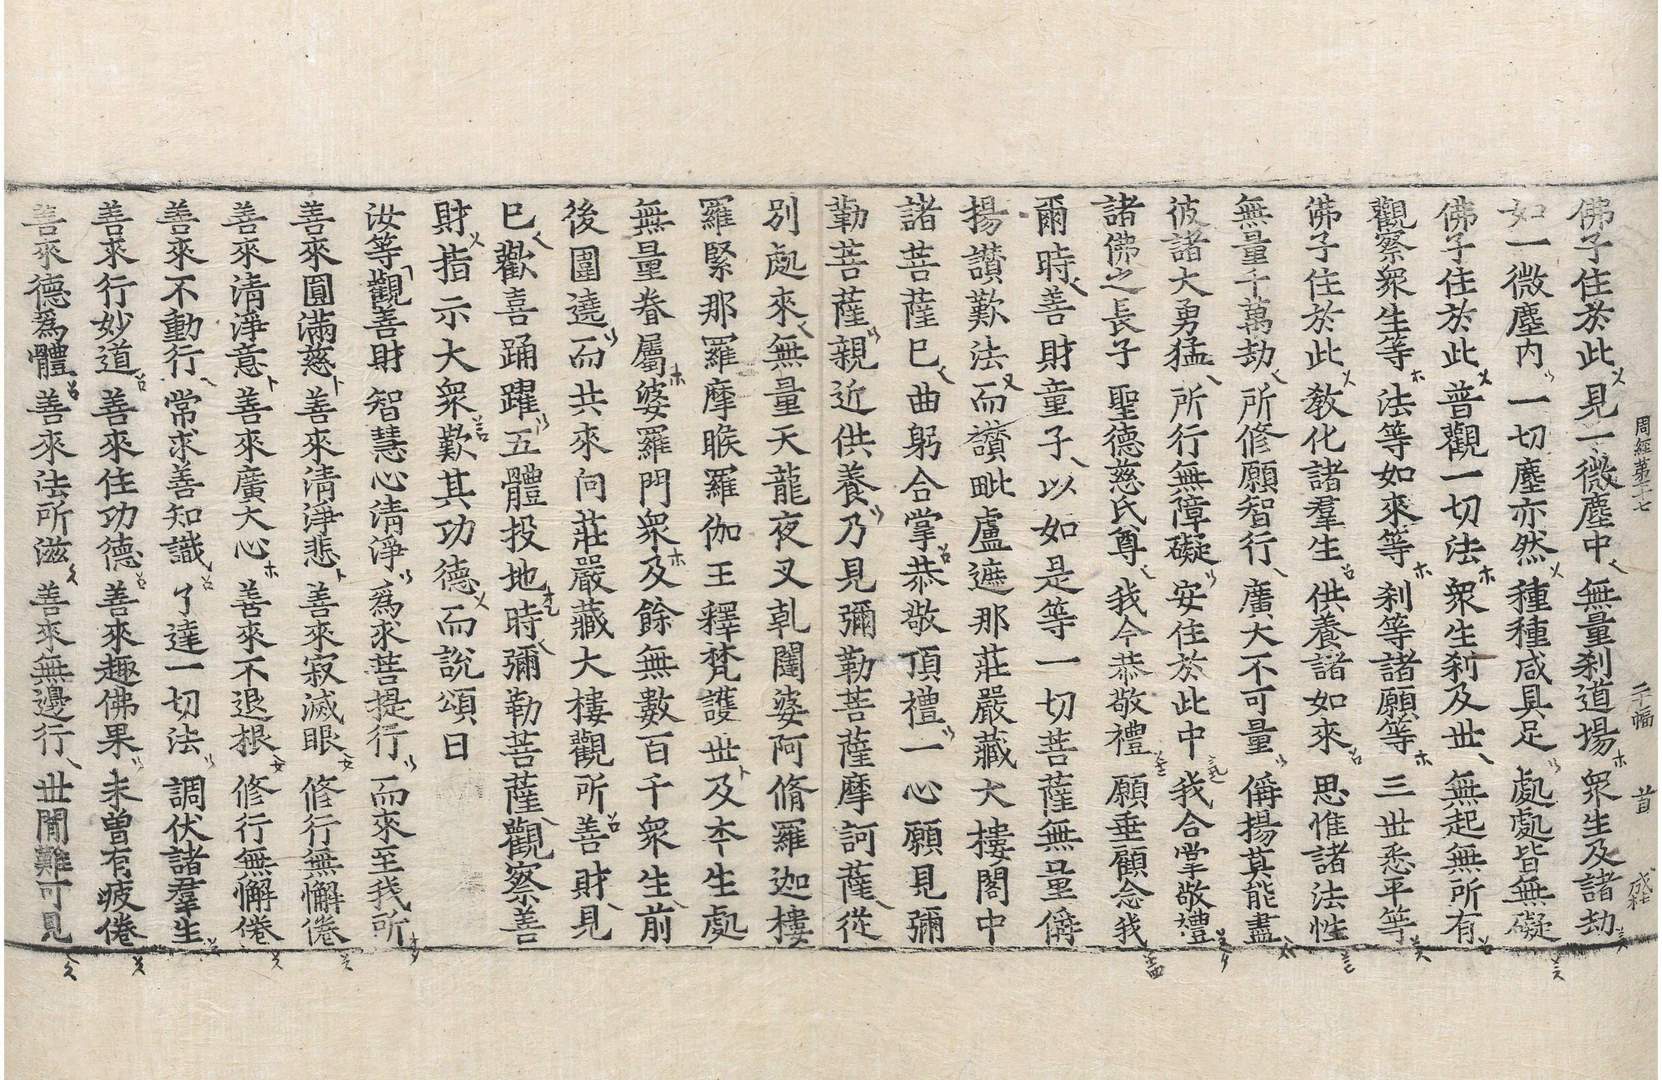 佛子住於此 見一微塵中 無量刹道場 衆生及諸劫
如一微塵內 一切塵亦然 種種咸具足 處處皆無礙
佛子住於此 普觀一切法 衆生刹及世 無起無所有
觀察衆生等 法等如來等 刹等諸願等 三世悉平等
佛子住於此 教化諸羣生 供養諸如來 思惟諸法性
無量千萬劫 所修願智行 廣大不可量 稱揚莫能盡
彼諸大勇猛 所行無障礙 安住於此中 我合掌敬禮
諸佛之長子 聖德慈氏尊 我今恭敬禮 願垂顧念我
爾時善財童子以如是等一切菩薩無量稱
揚讃歎法而讃毗盧遮那莊嚴藏大樓閣中
諸菩薩已曲躬合掌恭敬頂禮一心願見彌
勒菩薩親近供養乃見彌勒菩薩摩訶薩從
別處來無量天龍夜叉乹闥婆阿脩羅迦樓
羅緊那羅摩睺羅伽王釋梵護世及夲生處
無量眷屬婆羅門衆及餘無數百千衆生前
後圍遶而共來向莊嚴藏大樓觀所善財見
已歡喜踊躍五體投地時彌勒菩薩觀察善
財指示大衆歎其功德而說頌曰
汝等觀善財 智慧心清淨 爲求菩提行 而來至我所
善來圓滿慈 善來清淨悲 善來寂滅眼 修行無懈倦
善來清淨意 善來廣大心 善來不退根 修行無懈倦
善來不動行 常求善知識 了達一切法 調伏諸羣生
善來行妙道 善來住功德 善來趣佛果 未曽有疲倦
善來德爲體 善來法所滋 善來無邊行 世間難可見
周經第十七